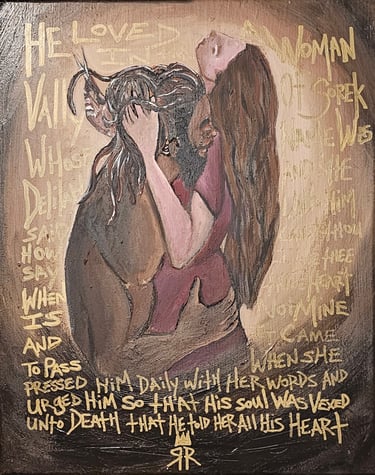 HE LOVED A WOMAN
IN
VALLY OF SOREK
WHOSE NAME WAS
DELILAH AND SHE
SAID HIM
HOW THOU
SAY THEE
WHEN HEART
IS NOT MINE
AND IT CAME
TO PASS WHEN SHE
PRESSED HIM DAILY WITH HER WORDS AND
URGED HIM SO THAT HIS SOUL WAS VEXED
UNTO DEATH THAT HE TOLD HER All HIS HEART
RR